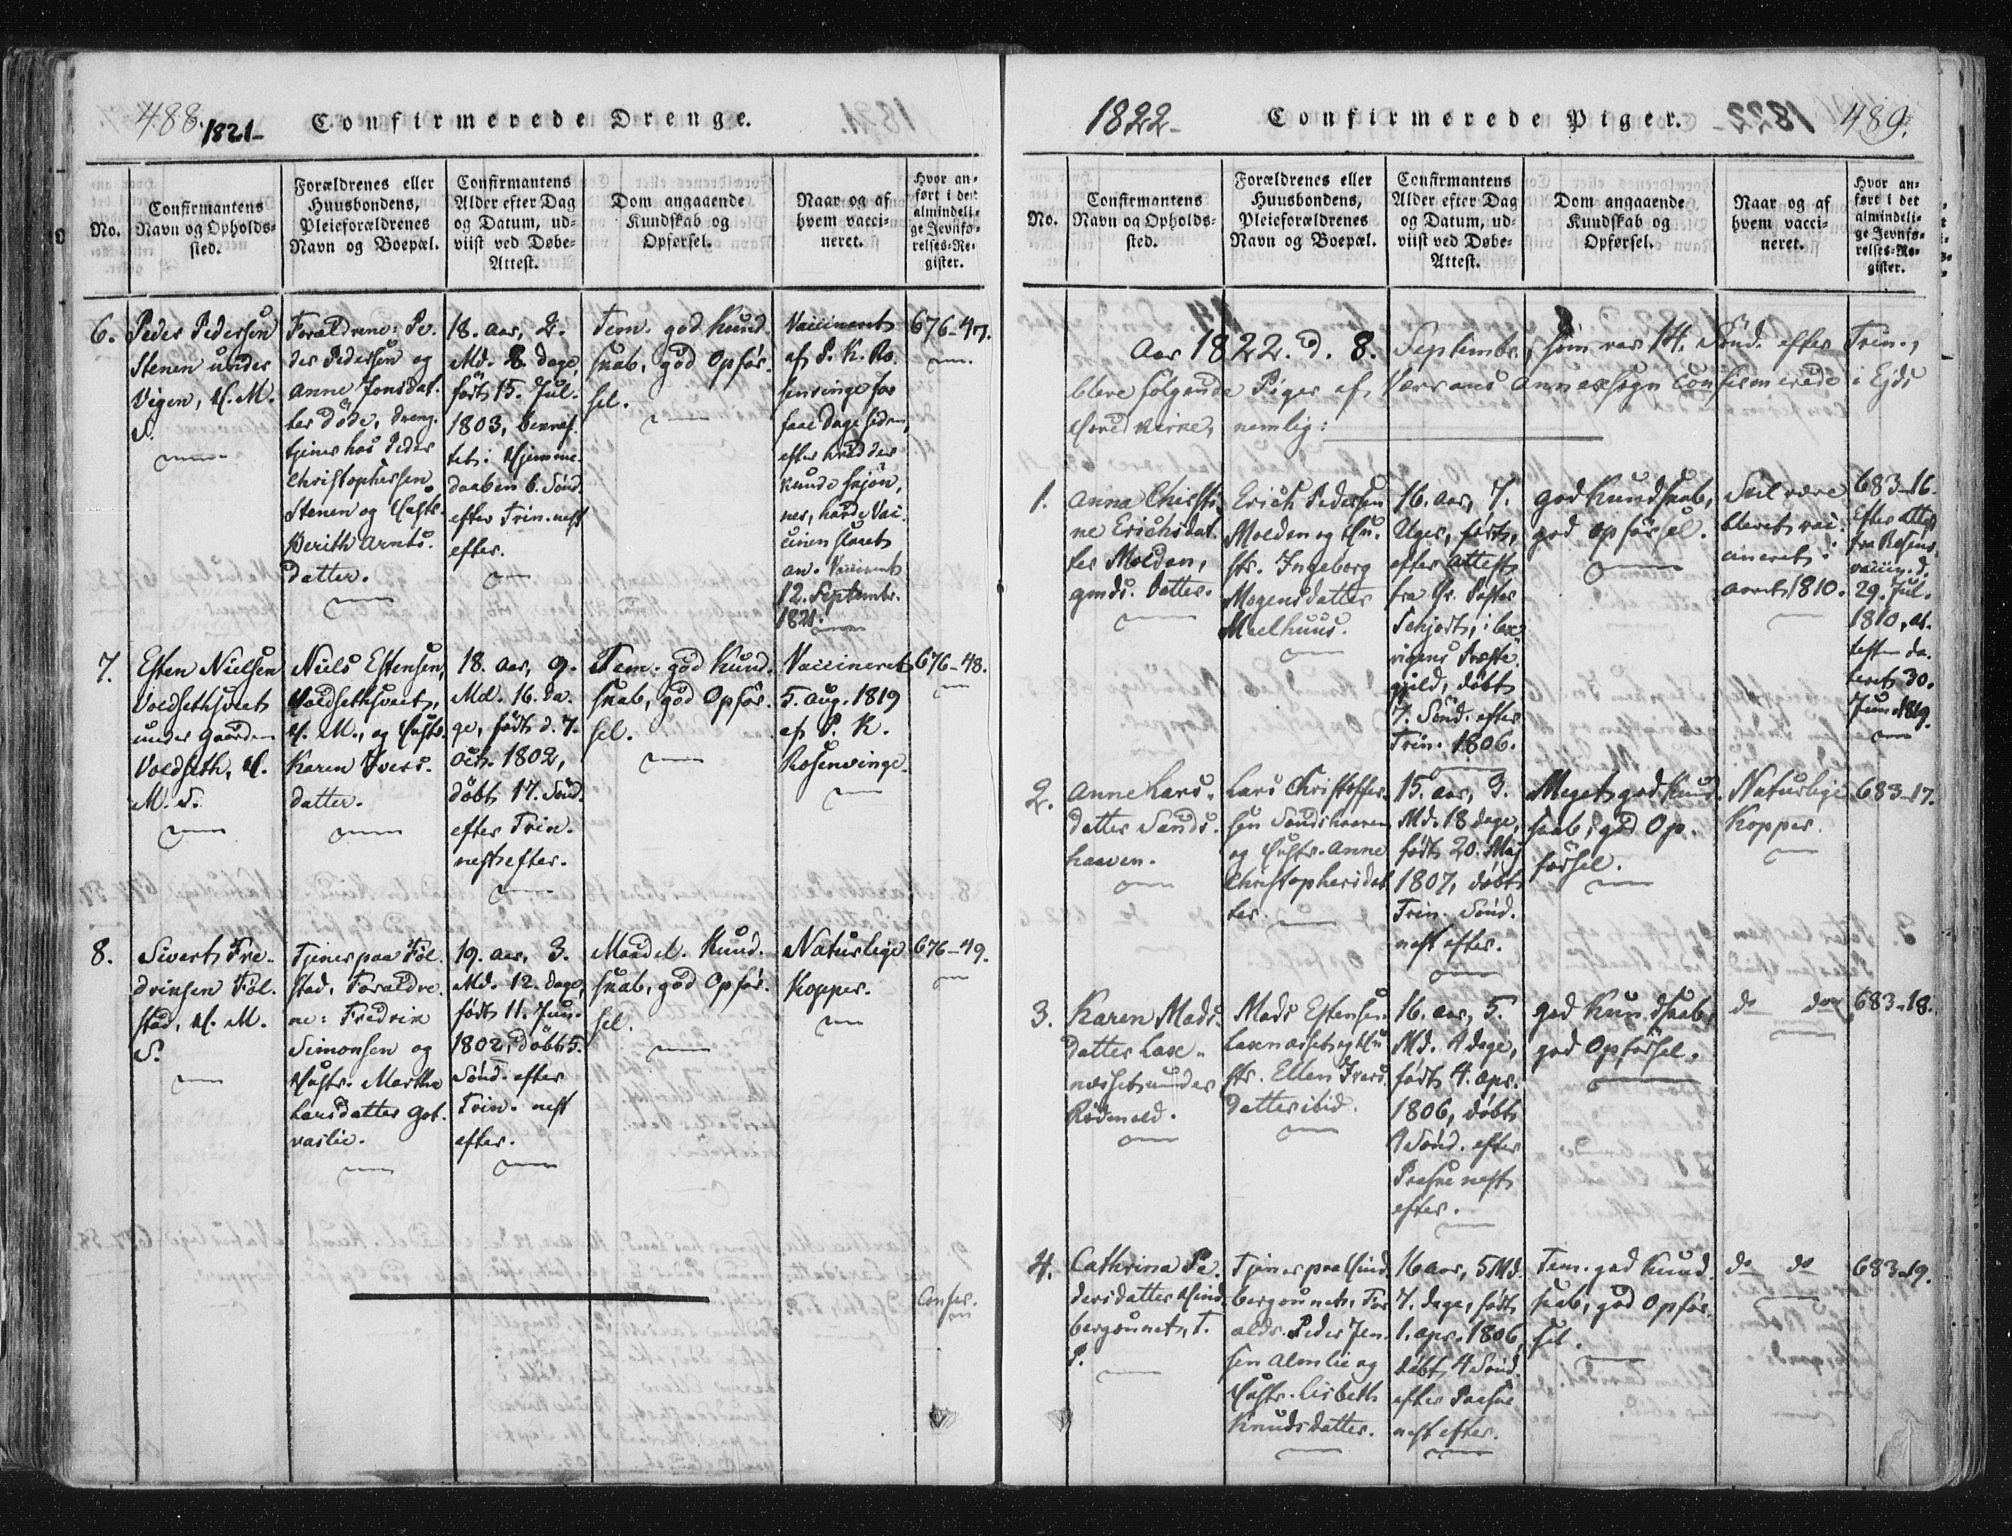 488.
1821-
Confirmerede Drenge.
No.
Confirmantens
Navn og Opholds-
sted.
Forældrenes eller
Huusbondens,
Pleieforældrenes
Navn og Boepæl.
Confirmantens
Alder efter Dag
og Datum, ud-
viist ved Døbe-
Attest.
Dom angaaende
Kundskab og
Opførsel.
Naar og af
hvem vacci-
neret.
Hvor an-
ført i det
almindeli-
ge Jevnfø-
relses-Re-
gister.
6.
Peder Pedersen
Stenen under
Vigen, H. M.
S.
Forældrene: Pe-
der Pedersen og
Anne Jonsdat-
ter døde, dreng.
tjener hos Peder
Christophersen
Stenen og Hustr.
Berith Arnts-
datter.
18. Aar, 2.
Md. 8 dage,
født 15. Jul.
1803,
Hjemme-
daaben 6. Sønd.
efter Trin. nest
efter.
Tem. god Kund-
skab, god Opfør-
sel.
Vaccineret
af P. K. Ro-
senvinge for
faae Dage siden,
efter hvad der
kunde skjøn-
nes, havde Vac-
cinen slaaet
an. Vaccineret
12. Septembr.
1821.
676-47.
7.
Esten Nielsen
Voldsethsveet
under Gaarden
Voldseth, H.
M. S.
Niels Estensen
Voldsethsveet,
H. M., og Hustr.
Karen Ivers-
datter.
18. Aar, 9.
Md. 16. Da-
ge, født d. 7.
Oct. 1802,
døbt 17. Sønd.
efter Trin.
nest efter.
Tem. god Kund-
skab, god Opfør-
sel.
Vaccineret
5. Aug. 1819
af P. K.
Rosenvinge.
676-48.
8.
Sivert Fre-
driksen Føl-
stad, H. M.
S.
Tjener paa Føl-
stad, Forældre-
ne: Fredrik
Simonsen og
Hustr. Marthe
Larsdatter Got-
vaslie.
19. Aar, 3.
Md. 12. Dage,
født 11. Jun.
1802, døbt 5.
Sønd. efter
Trin. nest
efter.
Maadel. Kund-
skab, god Opfør-
sel.
Naturlige
Kopper.
676-49.
Confer.
1822-
Confirmerede Piger.
489.
No.
Confirmantens
Navn og Opholds-
sted.
Forældrenes eller
Huusbondens,
Pleieforældrenes
Navn og Boepæl.
Confirmantens
Alder efter Dag
og Datum, ud-
viist ved Døbe-
Attest.
Dom angaaende
Kundskab og
Opførsel.
Naar og af
hvem vacci-
neret.
Hvor an-
ført i det
almindeli-
ge Jevnfø-
relses-Re-
gister.
Aar 1822. d. 8. Septembr., som var 14. Sønd. efter Trin.,
bleve følgende Piger af Værrans Annexsogn Confirmerede i Ejds
Hovedkirke, nemlig:
1.
Anna Christi-
ne Erichsdat-
ter Molden,
gmds. Datter.
Erich Pedersen
Molden og Hu-
str. Ingeborg
Mogensdatter
Melhuus.
16. Aar, 7.
Uger, født,
efter Attest
fra Hr. Pastor
Schjødt, i Lex-
vigens Præste-
gjeld, døbt
7. Sønd. efter
Trin. 1806.
god Kundskab,
god Opførsel.
Skal være
blevet vac-
cineret i
Aaret 1810.
683-16.
Efter Attest
fra Rosen-
vinge d.
29. Jul.
1810, at-
testen da-
teret 30.
Jun. 1819.
2.
Anne Lars-
datter Sands-
haaven.
Lars Christoffer-
sen Sandshaaven
og Hustr. Anne
Christophersdat-
ter.
15. Aar, 3.
Md. 18 dage,
født 20. Maj
1807, døbt
Trin. Sønd.
nest efter.
Meget god Kund-
skab, god Op-
førsel.
Naturlige
Kopper.
683-17.
3.
Karen Mads-
datter Laxe-
næsset under
Rødvold.
Mads Estensen
Laxenæsset og Hu-
str. Ellen Ivers-
datter ibid.
16. Aar, 5.
Md. 4 dage,
født 4. Apr.
1806, døbt
4 Sønd. efter
Paaske nest
efter.
god Kundskab,
god Opførsel.
do do
683-18.
4.
Cathrina Pe-
dersdatter Hind-
bergaunet, T.
P.
Tjener paa Hind-
bergaunet, For-
ældr. Peder Jen-
sen Almlie og
Hustr. Lisbeth
Knudsdatter.
16 Aar, 5 Md.
7. dage, født
1. Apr. 1806,
døbt 4 Sønd.
efter Paaske
nest efter.
Tem. god Kund-
skab, god Opfør-
sel.
do do
683-19.